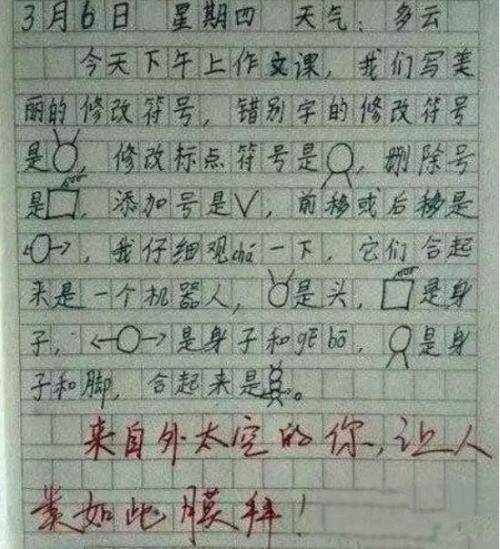 3月6日 星期四 天气：多云
今天下午上作文课，我们写美
丽的修改符号，错别字的修改符号
是，修改标点符号是，删除号
是，添加号是∨，前移或后移是
←○→，我仔细观chá一下，它们合起
来是一个机器人，是头，是身
子，←○→是身子和gē bō，是身
子和脚，合起来是。
来自外太空的你，让人
类如此膜拜！